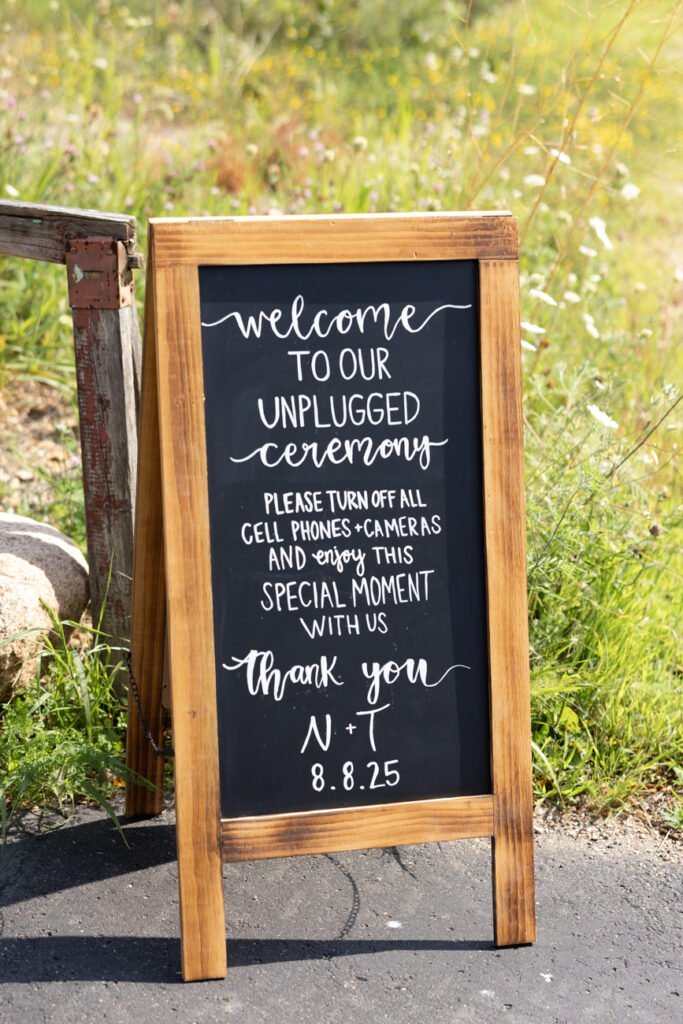 welcome
TO OUR
UNPLUGGED
ceremony
PLEASE TURN OFF ALL
CELL PHONES + CAMERAS
AND enjoy THIS
SPECIAL MOMENT
WITH US
thank you
N + T
8.8.25